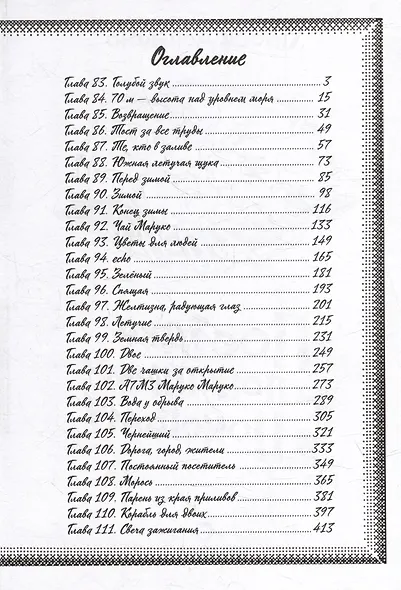 Оглавление
Глава 83. Голубой звук 3
Глава 84. 70 м — высота над уровнем моря 15
Глава 85. Возвращение 31
Глава 86. Тост за все труды 49
Глава 87. Те, кто в заливе 57
Глава 88. Южная летучая щука 73
Глава 89. Перед зимой 85
Глава 90. Зимой 98
Глава 91. Конец зимы 116
Глава 92. Чай Маруко 133
Глава 93. Цветы для людей 149
Глава 94. echo 165
Глава 95. Зелёный 181
Глава 96. Спящая 193
Глава 97. Желтизна, радующая глаз 201
Глава 98. Летучие 215
Глава 99. Земная твердь 231
Глава 100. Двое 249
Глава 101. Две чашки за открытие 257
Глава 102. A7M3 Маруко Маруко 273
Глава 103. Вода у обрыва 289
Глава 104. Переход 305
Глава 105. Чернейший 321
Глава 106. Дорога, город, жители 333
Глава 107. Постоянный посетитель 349
Глава 108. Морось 365
Глава 109. Парень из края приливов 381
Глава 110. Корабль для двоих 397
Глава 111. Свеча зажигания 413